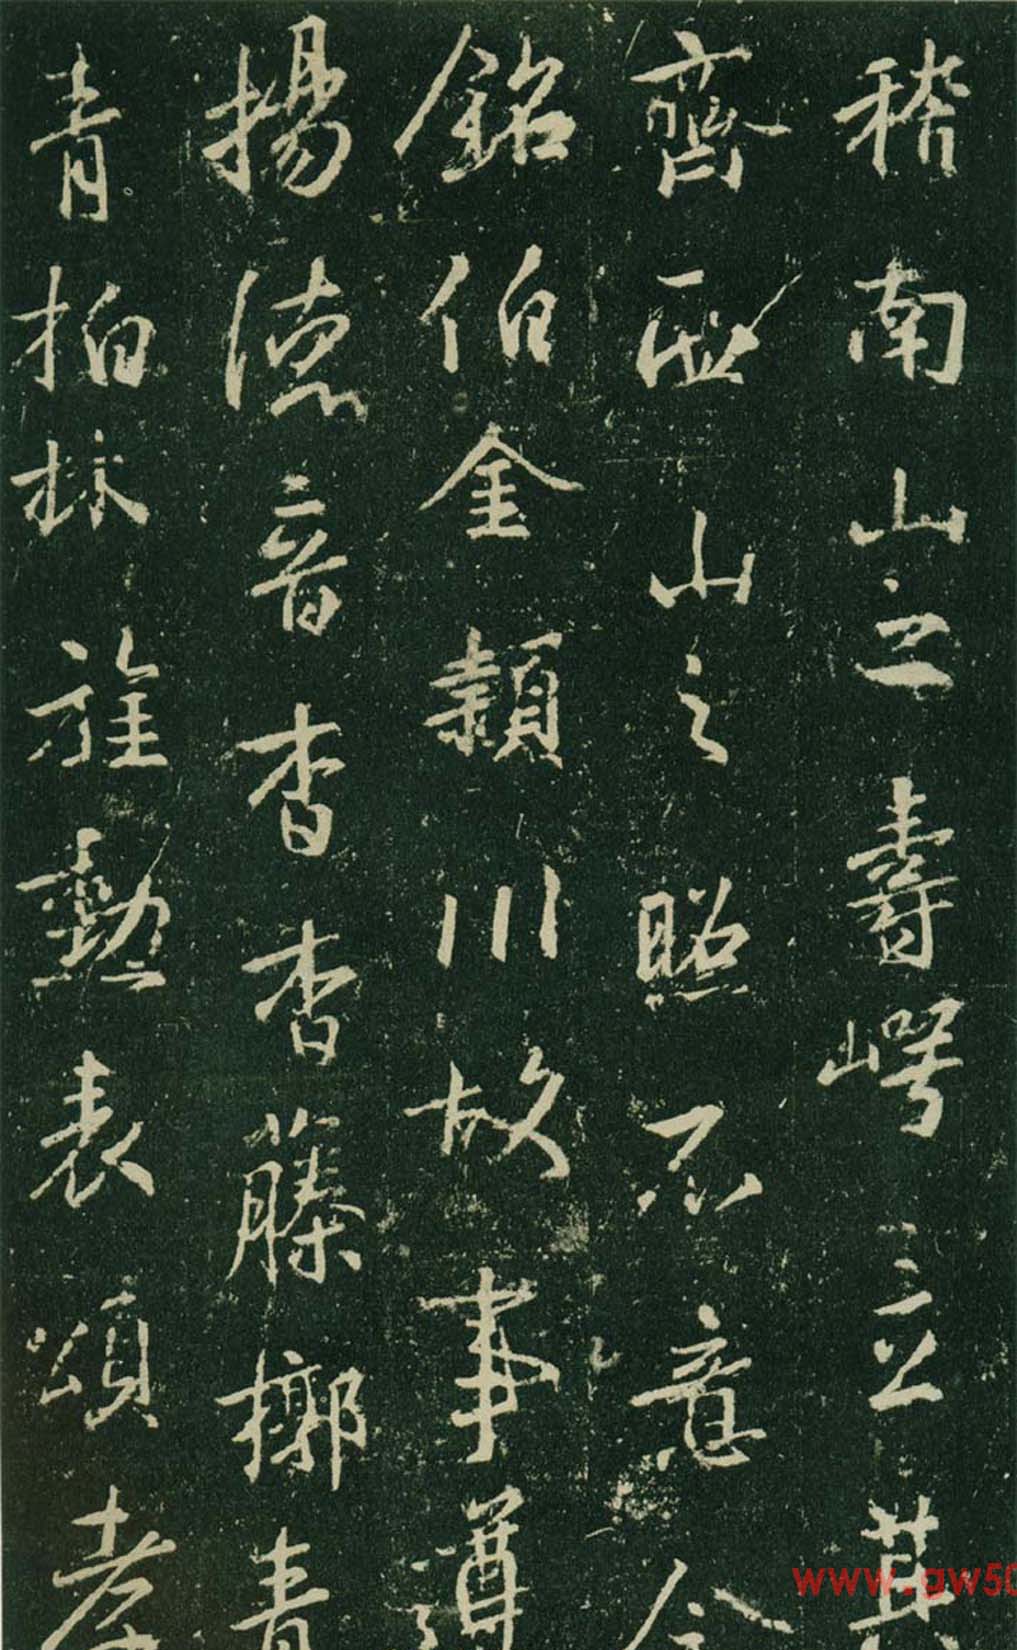 稽南山壽崿立其
齊山之照不意今
銘伯金頴川故事遵
揚德音杳杳藤槨青
青柏林旌勳表頌孝
www.gw50